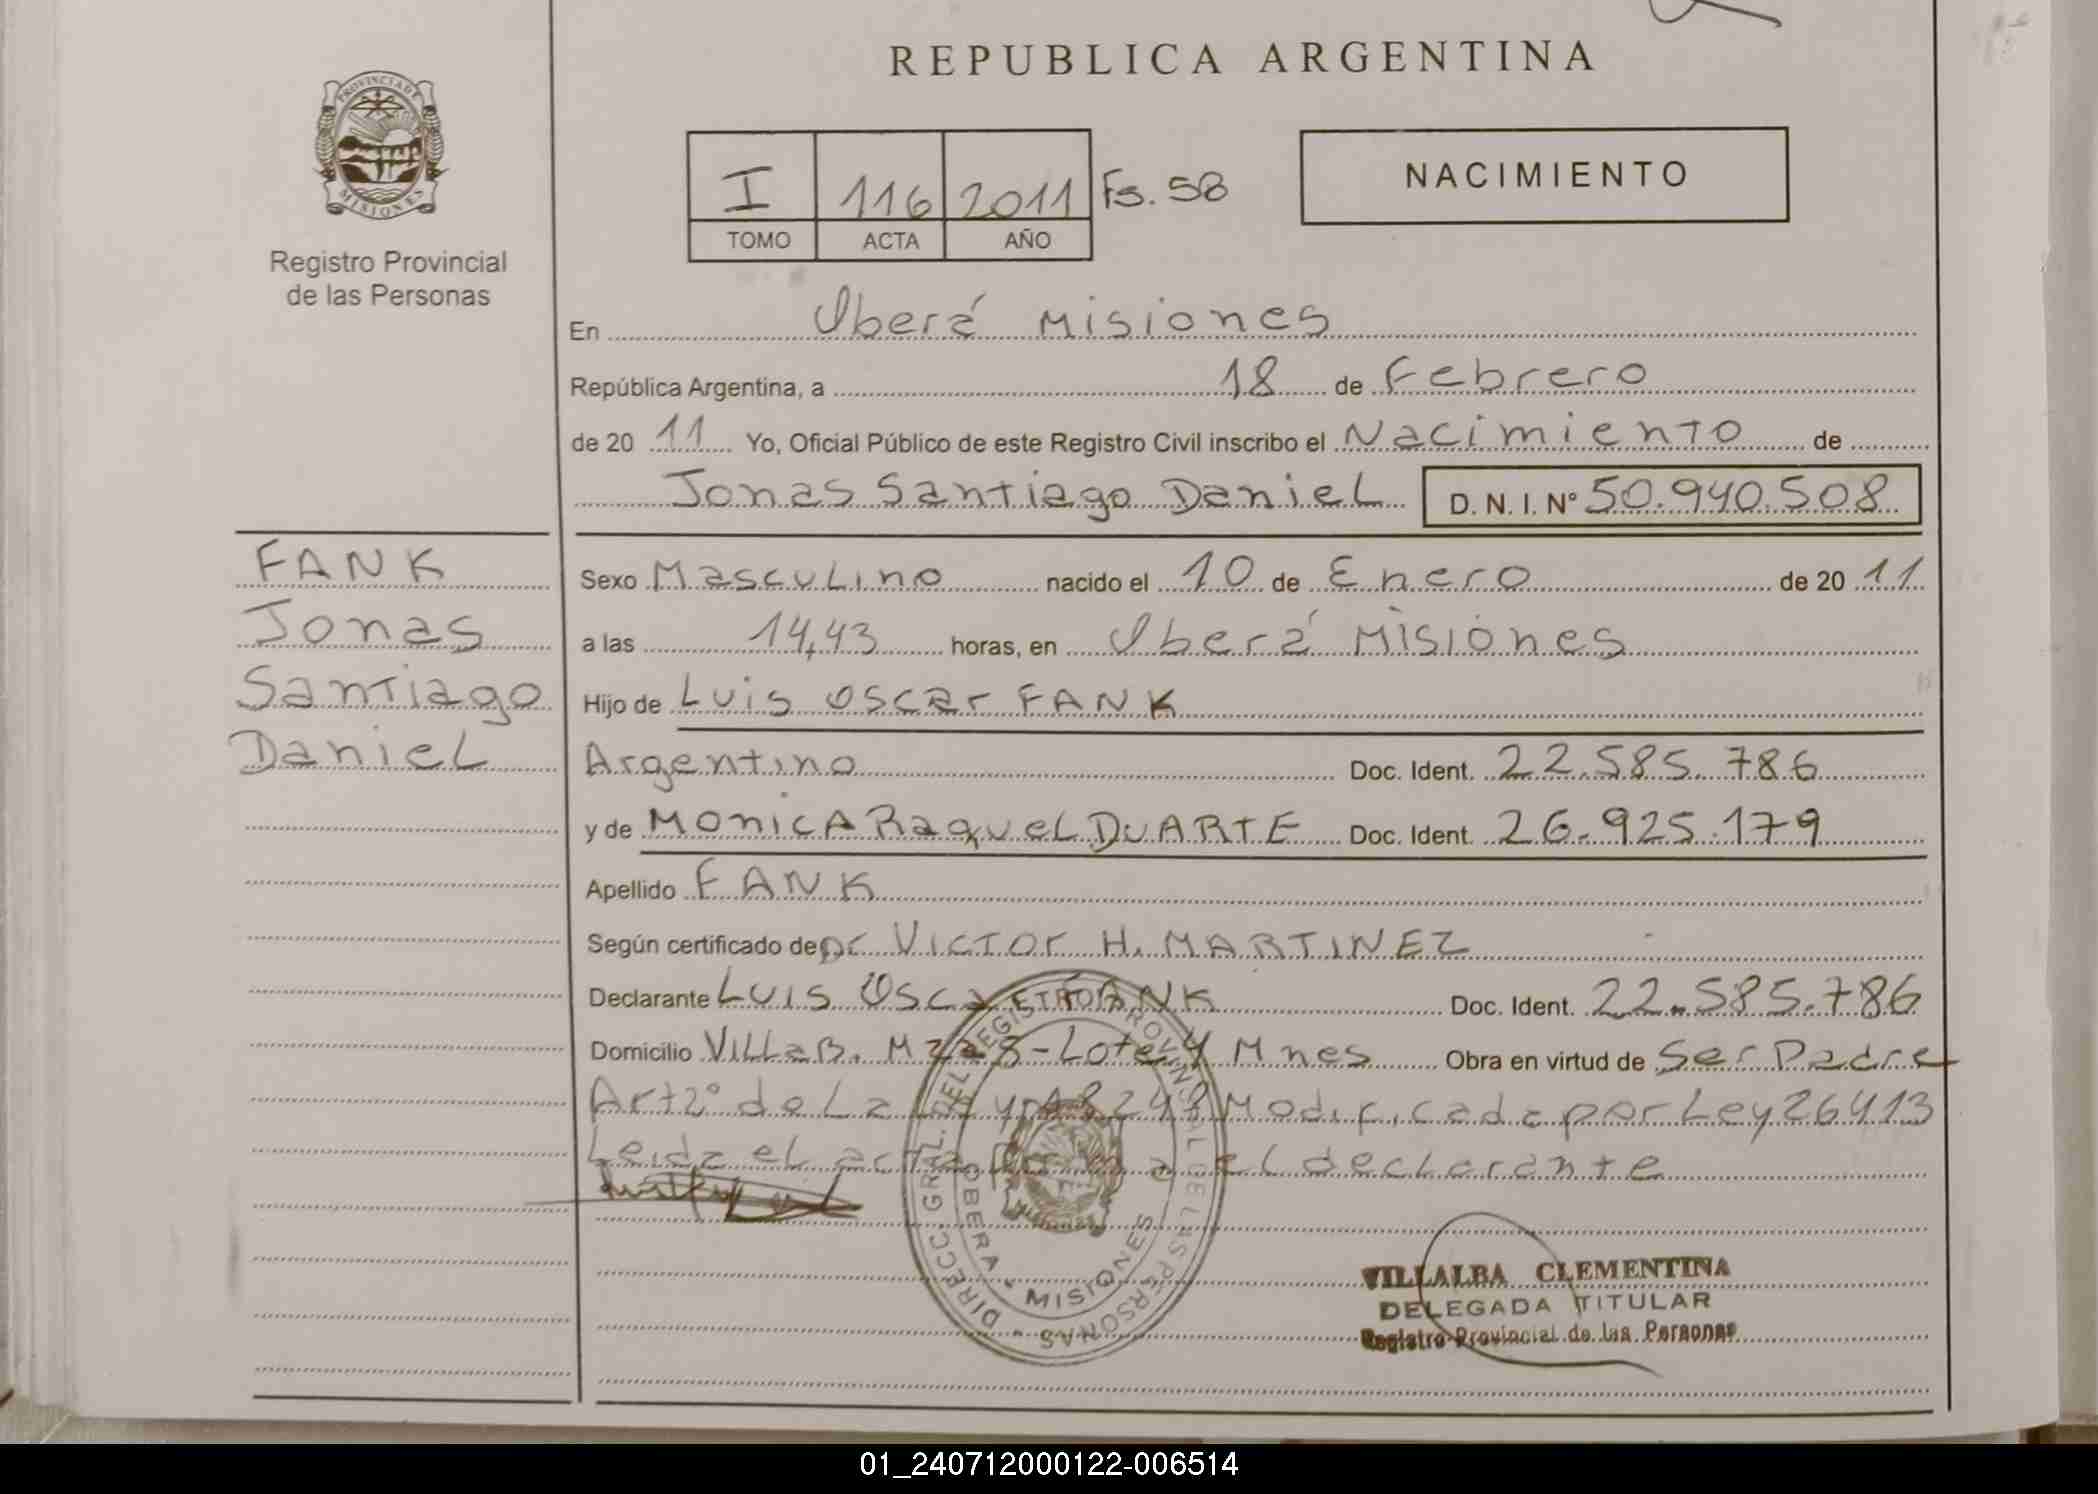 REPUBLICA ARGENTINA
PROVINCIA DE
MISIONES
Registro Provincial
de las Personas
I 116 2011 Fs. 58
TOMO ACTA AÑO
NACIMIENTO
En Oberá Misiones
República Argentina, a 18 de Febrero
de 20 11 Yo, Oficial Público de este Registro Civil inscribo el Nacimiento de
Jonas Santiago Daniel D. N. I. N° 50.940.508
FANK
Jonas
Santiago
Daniel
Sexo Masculino nacido el 10 de Enero de 20 11
a las 14,43 horas, en Oberá Misiones
Hijo de Luis Oscar FANK
Argentino Doc. Ident. 22.585.786
y de MONICA Raquel DUARTE Doc. Ident. 26.925.179
Apellido FANK
Según certificado de Dr VICTOR H. MARTINEZ
Declarante LUIS Oscar FANK Doc. Ident. 22.585.786
Domicilio Villa B. Mza 8-Lote 4 Mnes Obra en virtud de Ser Padre
Art 2° de La Ley 18248 Modificada por Ley 26413
Leida el acta firma el declarante
DIRECC. GRAL. DEL REGISTRO PROVINCIAL DE LAS PERSONAS
OBERA - MISIONES
VILLALBA CLEMENTINA
DELEGADA TITULAR
Registro Provincial de las Personas
01_240712000122-006514